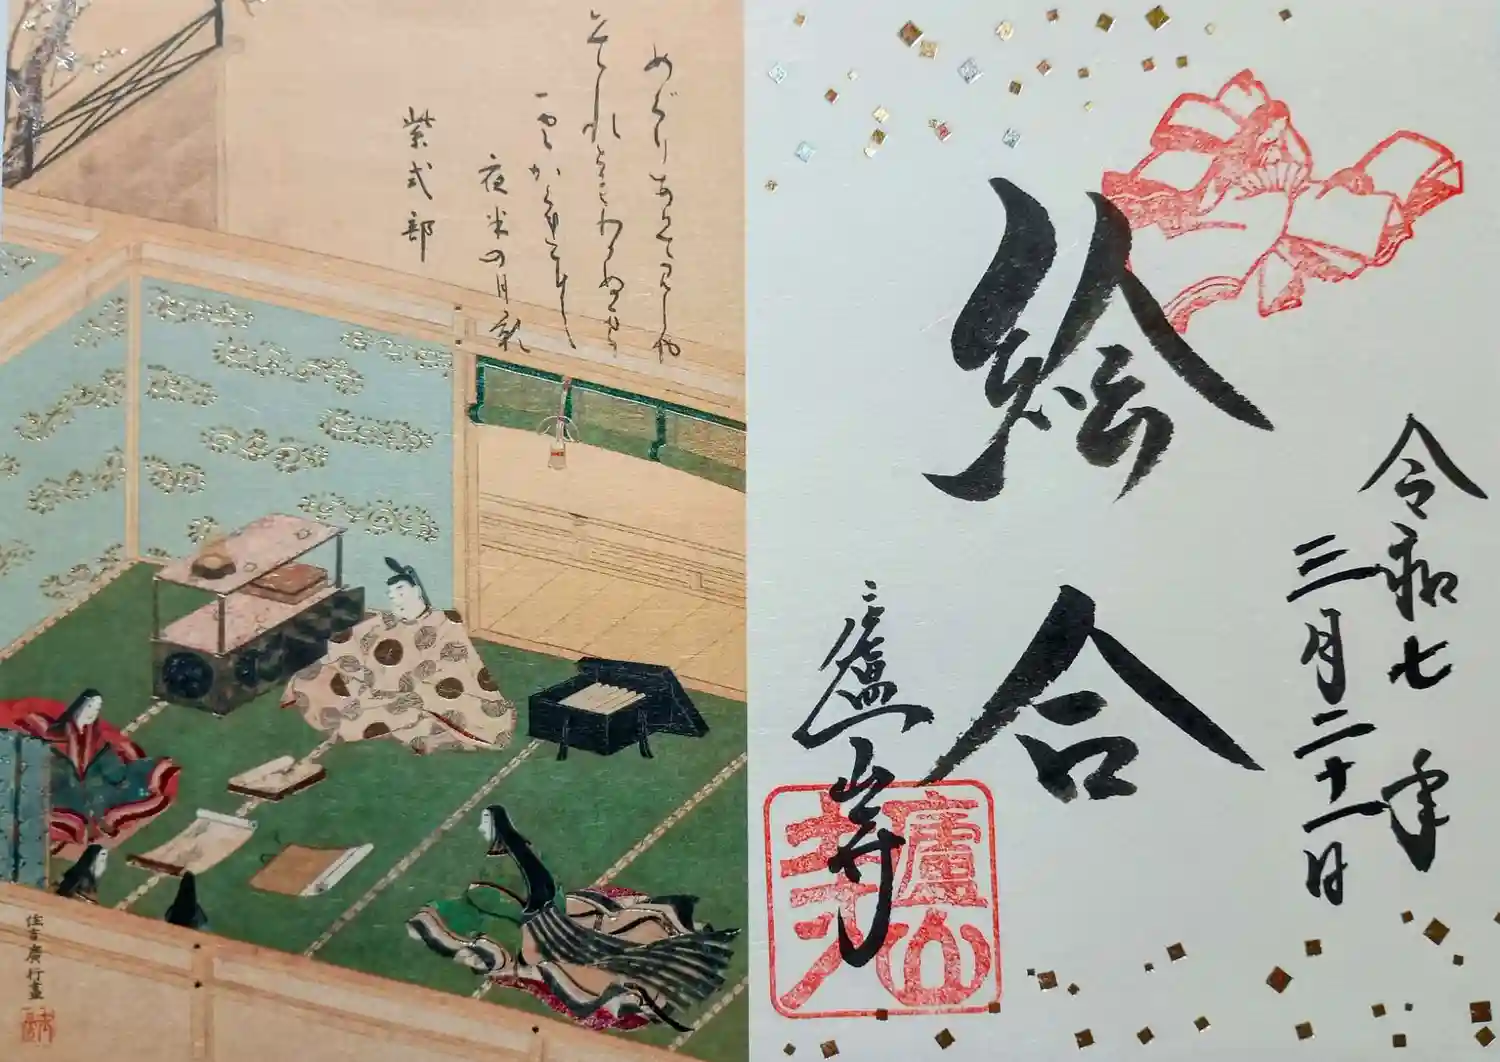 めぐりあひて見しや
それともわかぬまに
雲かくれにし
夜半の月哉
紫式部
住吉廣行畫
令和七年
三月二十一日
絵合
廬山寺
廬山寺